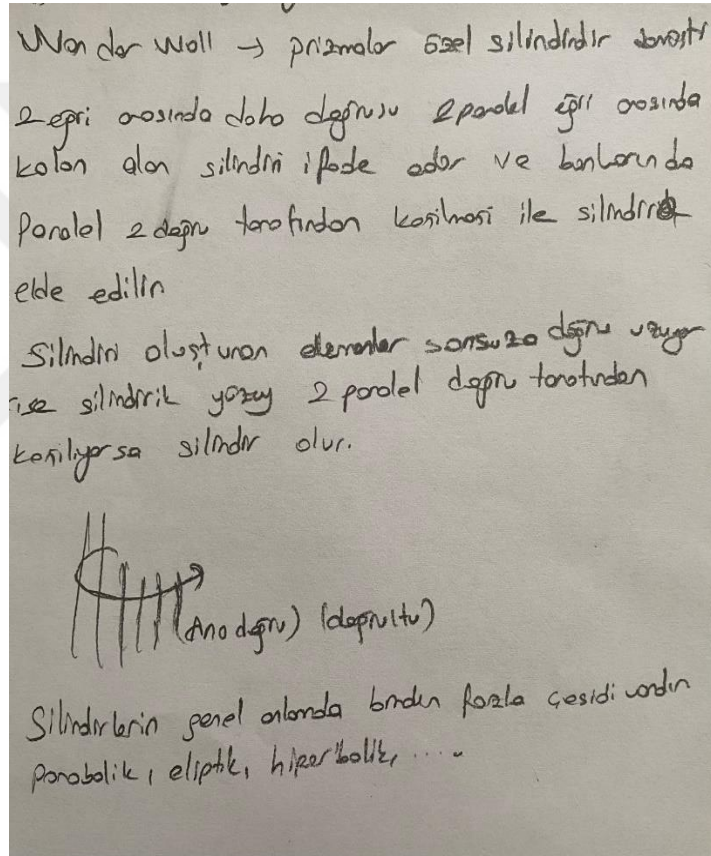 Van der Wall → prizmalar özel silindirdir demişti
2 eğri arasında daha doğrusu 2 paralel eğri arasında
kalan alan silindiri ifade eder ve bunlarında
Paralel 2 doğru tarafından kesilmesi ile silindir
elde edilir
Silindiri oluşturan elemanlar sonsuza doğru uzuyor
ise silindirik yüzey 2 paralel doğru tarafından
kesiliyorsa silindir olur.
(Ana doğru) (doğrultu)
Silindirlerin genel anlamda birden fazla çeşidi vardır
Parabolik, eliptik, hiperbolik, .....